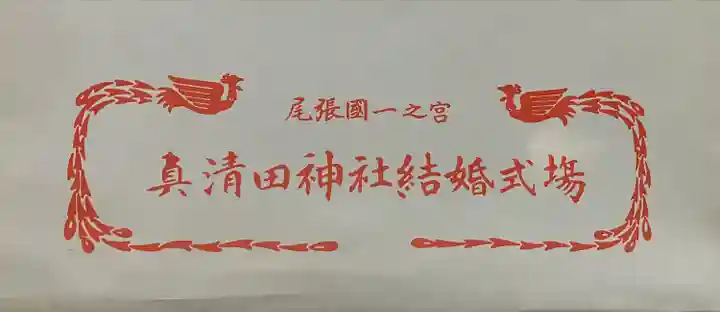 尾張國一之宮
真清田神社結婚式場